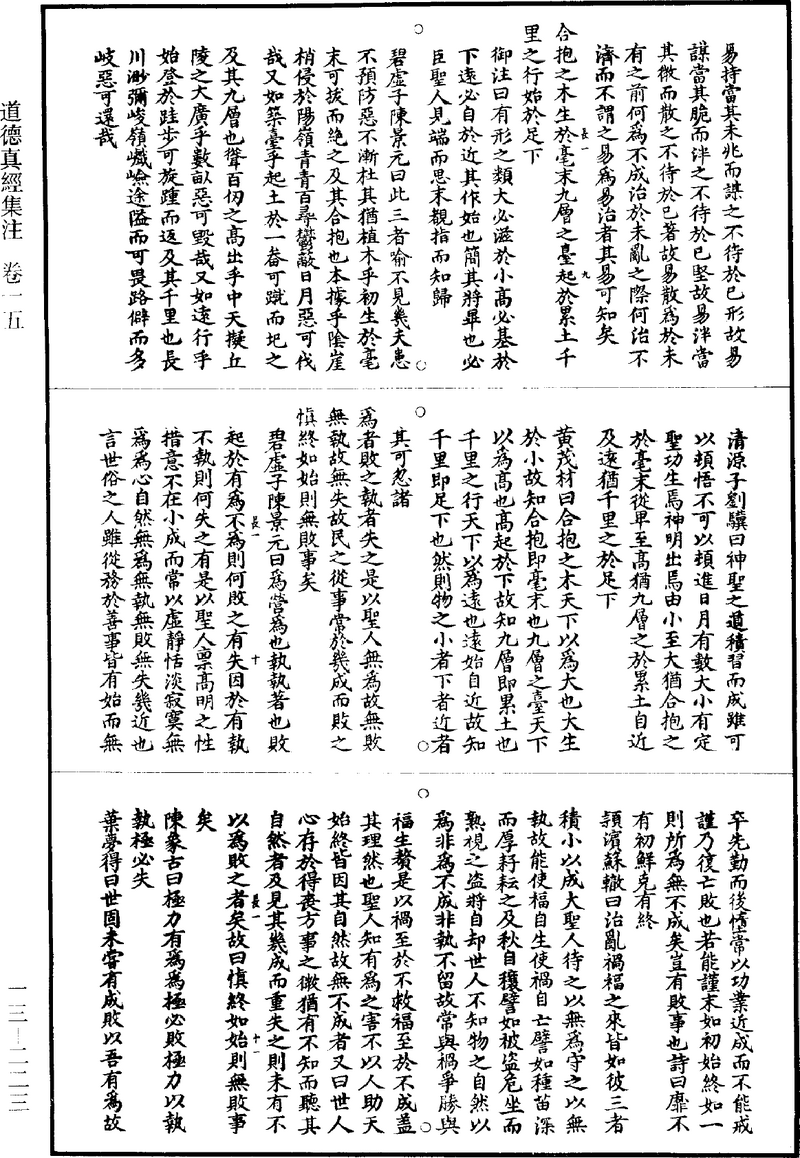 道德真經集注　卷一五
一三—二二三
易持當其未兆而謀之不待於已形故易
謀當其脆而泮之不待於已堅故易泮當
其微而散之不待於已著故易散為於未
有之前何為不成治於未亂之際何治不
濟而不謂之易為易治者其易可知矣
合抱之木生於毫末九層之臺起於累土千
里之行始於足下
御注曰有形之類大必滋於小高必基於
下遠必自於近其作始也簡其將畢也必
巨聖人見端而思末覩指而知歸
碧虛子陳景元曰此三者喻不見幾夫患
不預防惡不漸杜其猶植木乎初生於毫
末可拔而絶之及其合抱也本據乎陰崖
梢侵於陽嶺青青百尋鬱蔽日月惡可伐
哉又如築臺乎起土於一畚可蹴而圮之
及其九層也聳百仞之高出乎中天擬丘
陵之大廣乎數畝惡可毀哉又如遠行乎
始登於跬步可旋踵而返及其千里也長
川渺彌峻嶺巇嶮途隘而可畏路僻而多
岐惡可還哉
清源子劉驥曰神聖之道積習而成雖可
以頓悟不可以頓進日月有數大小有定
聖功生焉神明出焉由小至大猶合抱之
於毫末從卑至高猶九層之於累土自近
及遠猶千里之於足下
黃茂材曰合抱之木天下以為大也大生
於小故知合抱即毫末也九層之臺天下
以為高也高起於下故知九層即累土也
千里之行天下以為遠也遠始自近故知
千里即足下也然則物之小者下者近者
其可忽諸
為者敗之執者失之是以聖人無為故無敗
無執故無失故民之從事常於幾成而敗之
慎終如始則無敗事矣
碧虛子陳景元曰為營為也執執著也敗
起於有為不為則何敗之有失因於有執
不執則何失之有是以聖人禀高明之性
措意不在小成而常以虛靜恬淡寂寞無
為為心自然無為無執無敗無失幾近也
言世俗之人雖從務於善事皆有始而無
卒先勤而後惰常以功業近成而不能戒
謹乃復亡敗也若能謹末如初始終如一
則所為無不成矣豈有敗事也詩曰靡不
有初鮮克有終
潁濱蘇轍曰治亂禍福之來皆如彼三者
積小以成大聖人待之以無為守之以無
執故能使福自生使禍自亡譬如種苗深
而厚耔耘之及秋自穰譬如被盜危坐而
熟視之盜將自却世人不知物之自然以
為非為不成非執不留故常與禍爭勝與
福生贅是以禍至於不救福至於不成蓋
其理然也聖人知有為之害不以人助天
始終皆因其自然故無不成者又曰世人
心存於得喪方事之微猶有不知而聽其
自然者及見其幾成而重失之則未有不
以為敗之者矣故曰慎終如始則無敗事
矣
陳象古曰極力有為為極必敗極力以執
執極必失
葉夢得曰世固未嘗有成敗以吾有為故
長一　九
長一　十
長一　十一